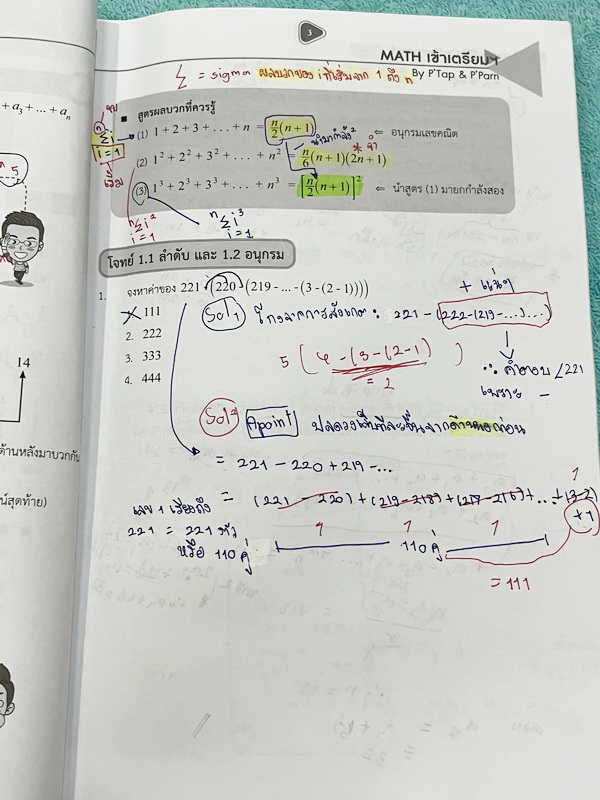 3
MATH เข้าเตรียมฯ
By P'Tap & P'Parn
Σ = sigma ผลบวกของ i ที่เริ่มจาก 1 ถึง n
+ a₃ + ... + aₙ
จบ
n
Σi
i = 1
เริ่ม
■ สูตรผลบวกที่ควรรู้
(1) 1 + 2 + 3 + . . . + n = n/2(n + 1) ⇐ อนุกรมเลขคณิต
นำมากำลัง2
* จำ
(2) 1² + 2² + 3² + . . . + n² = n/6(n + 1)(2n + 1)
(3) 1³ + 2³ + 3³ + . . . + n³ = [n/2(n + 1)]² ⇐ นำสูตร (1) มายกกำลังสอง
n
Σi²
i = 1
n
Σi³
i = 1
5
โจทย์ 1.1 ลำดับ และ 1.2 อนุกรม
1. จงหาค่าของ 221 - (220 - (219 - ... - (3 - (2 - 1))))
1. 111
2. 222
3. 333
4. 444
14
+ แน่ๆ
Sol 1 โกงจากการสังเกต : 221 - (222 - (219 - ...)...)
5 ( 4 - (3 - (2 - 1) )
= 2
∴ คำตอบ < 221
เพราะ -
Sol 2 A point 1 ปลดวงเล็บทีละชั้นจากด้านนอกก่อน
= 221 - 220 + 219 - ...
ด้านหลังมาบวกกับ
น์สุดท้าย)
เลข 1 เรียงถึง
221 = 221 ตัว
หรือ 110 คู่
= (221 - 220) + (219 - 218) + (217 - 216) + ... + (3 - 2)
+ 1
1 1 1 1
110 คู่
= 111